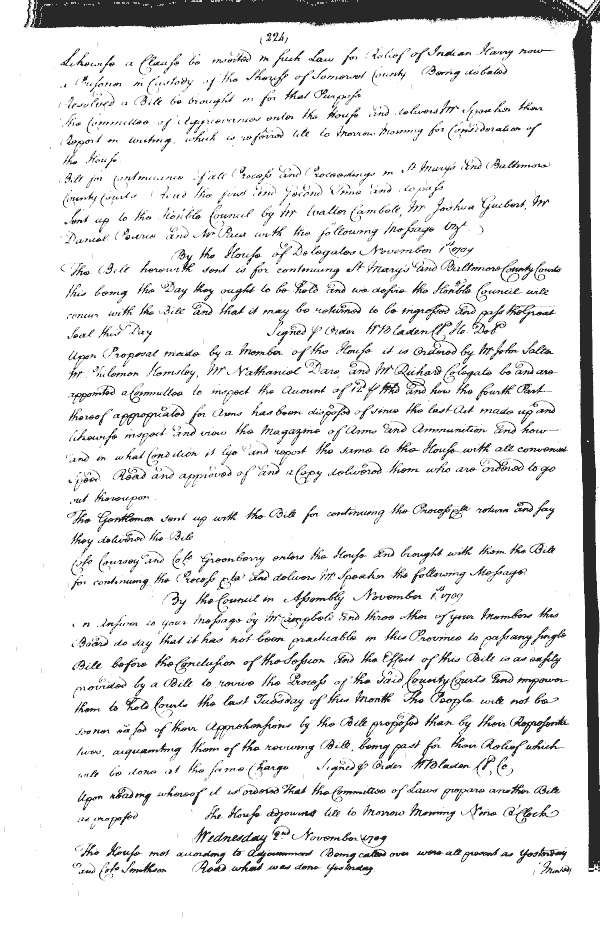 (224)
Likewise a Clause be inserted in such Law for Relief of Indian Harry now
a Prisoner in Custody of the Sheriff of Somerset County Being debated
Resolved a Bill be brought in for that Purpose
The Committee of Aggrievances enter the House and delivers Mr Speaker their
Report in writing, which is referred till to Morrow Morning for Consideration of
the House
Bill for continuance of all Process and Proceedings in St Marys and Baltimore
County Courts Read the first and second Time and do pass
Sent up to the Honble Council by Mr Walter Cambell, Mr Joshua Guibert, Mr
Daniel Pearce and Mr Rice with the following Message Vizt
By the House of Delegates November 1st 1709
The Bill herewith sent is for continuing St Marys and Baltimore County Courts
this being the Day they ought to be held and we desire the Honble Council will
concur with the Bill and that it may be returned to be ingrossed and pass the Great
Seal this Day Signed p Order WBladen Cl. Ho. Del
Upon Proposal made by a Member of the House it is Ordered by Mr John Salter
Mr Philemon Hemsley, Mr Nathaniel Dare, and Mr Richard Colegate be and are
appointed a Committee to inspect the Account of and how the fourth Part
thereof appropriated for Arms has been disposed of since the last Act made up and
likewise inspect and view the Magazine of Arms and Ammunition and how
and in what Condition it lyes and report the same to the House with all convenient
speed Read and approved of and a Copy delivered them who are ordered to go
out thereupon
The Gentlemen sent up with the Bill for continuing the Process &ca return and say
they delivered the Bill
Colo Coursey and Colo Greenberry enters the House and brought with them the Bill
for continuing the Process &ca and delivers Mr Speaker the following Message
By the Council in Assembly November 1st 1709
In Answer to your Message by Mr Campbell and three other of your Members this
Board do say that it has not been practicable in this Province to pass any single
Bill before the Conclusion of the Session and the Effect of this Bill is as easily
provided by a Bill to revive the Process of the said County Courts and impower
them to hold Courts the last Tuesday of this Month The People will not be
sooner eased of their Apprehensions by the Bill proposed than by their Representa
tives, acquainting them of the reviving Bill, being past for their Relief which
will be done at the same Charge Signed p Order WBladen Cl. Co.
Upon reading whereof it is ordered that the Committee of Laws prepare another Bill
as proposed The House adjourned till to Morrow Morning Nine o'Clock
Wednesday 2nd November 1709
The House met according to Adjournment Being called over were all present as Yesterday
and Colo Smithson Read what was done Yesterday